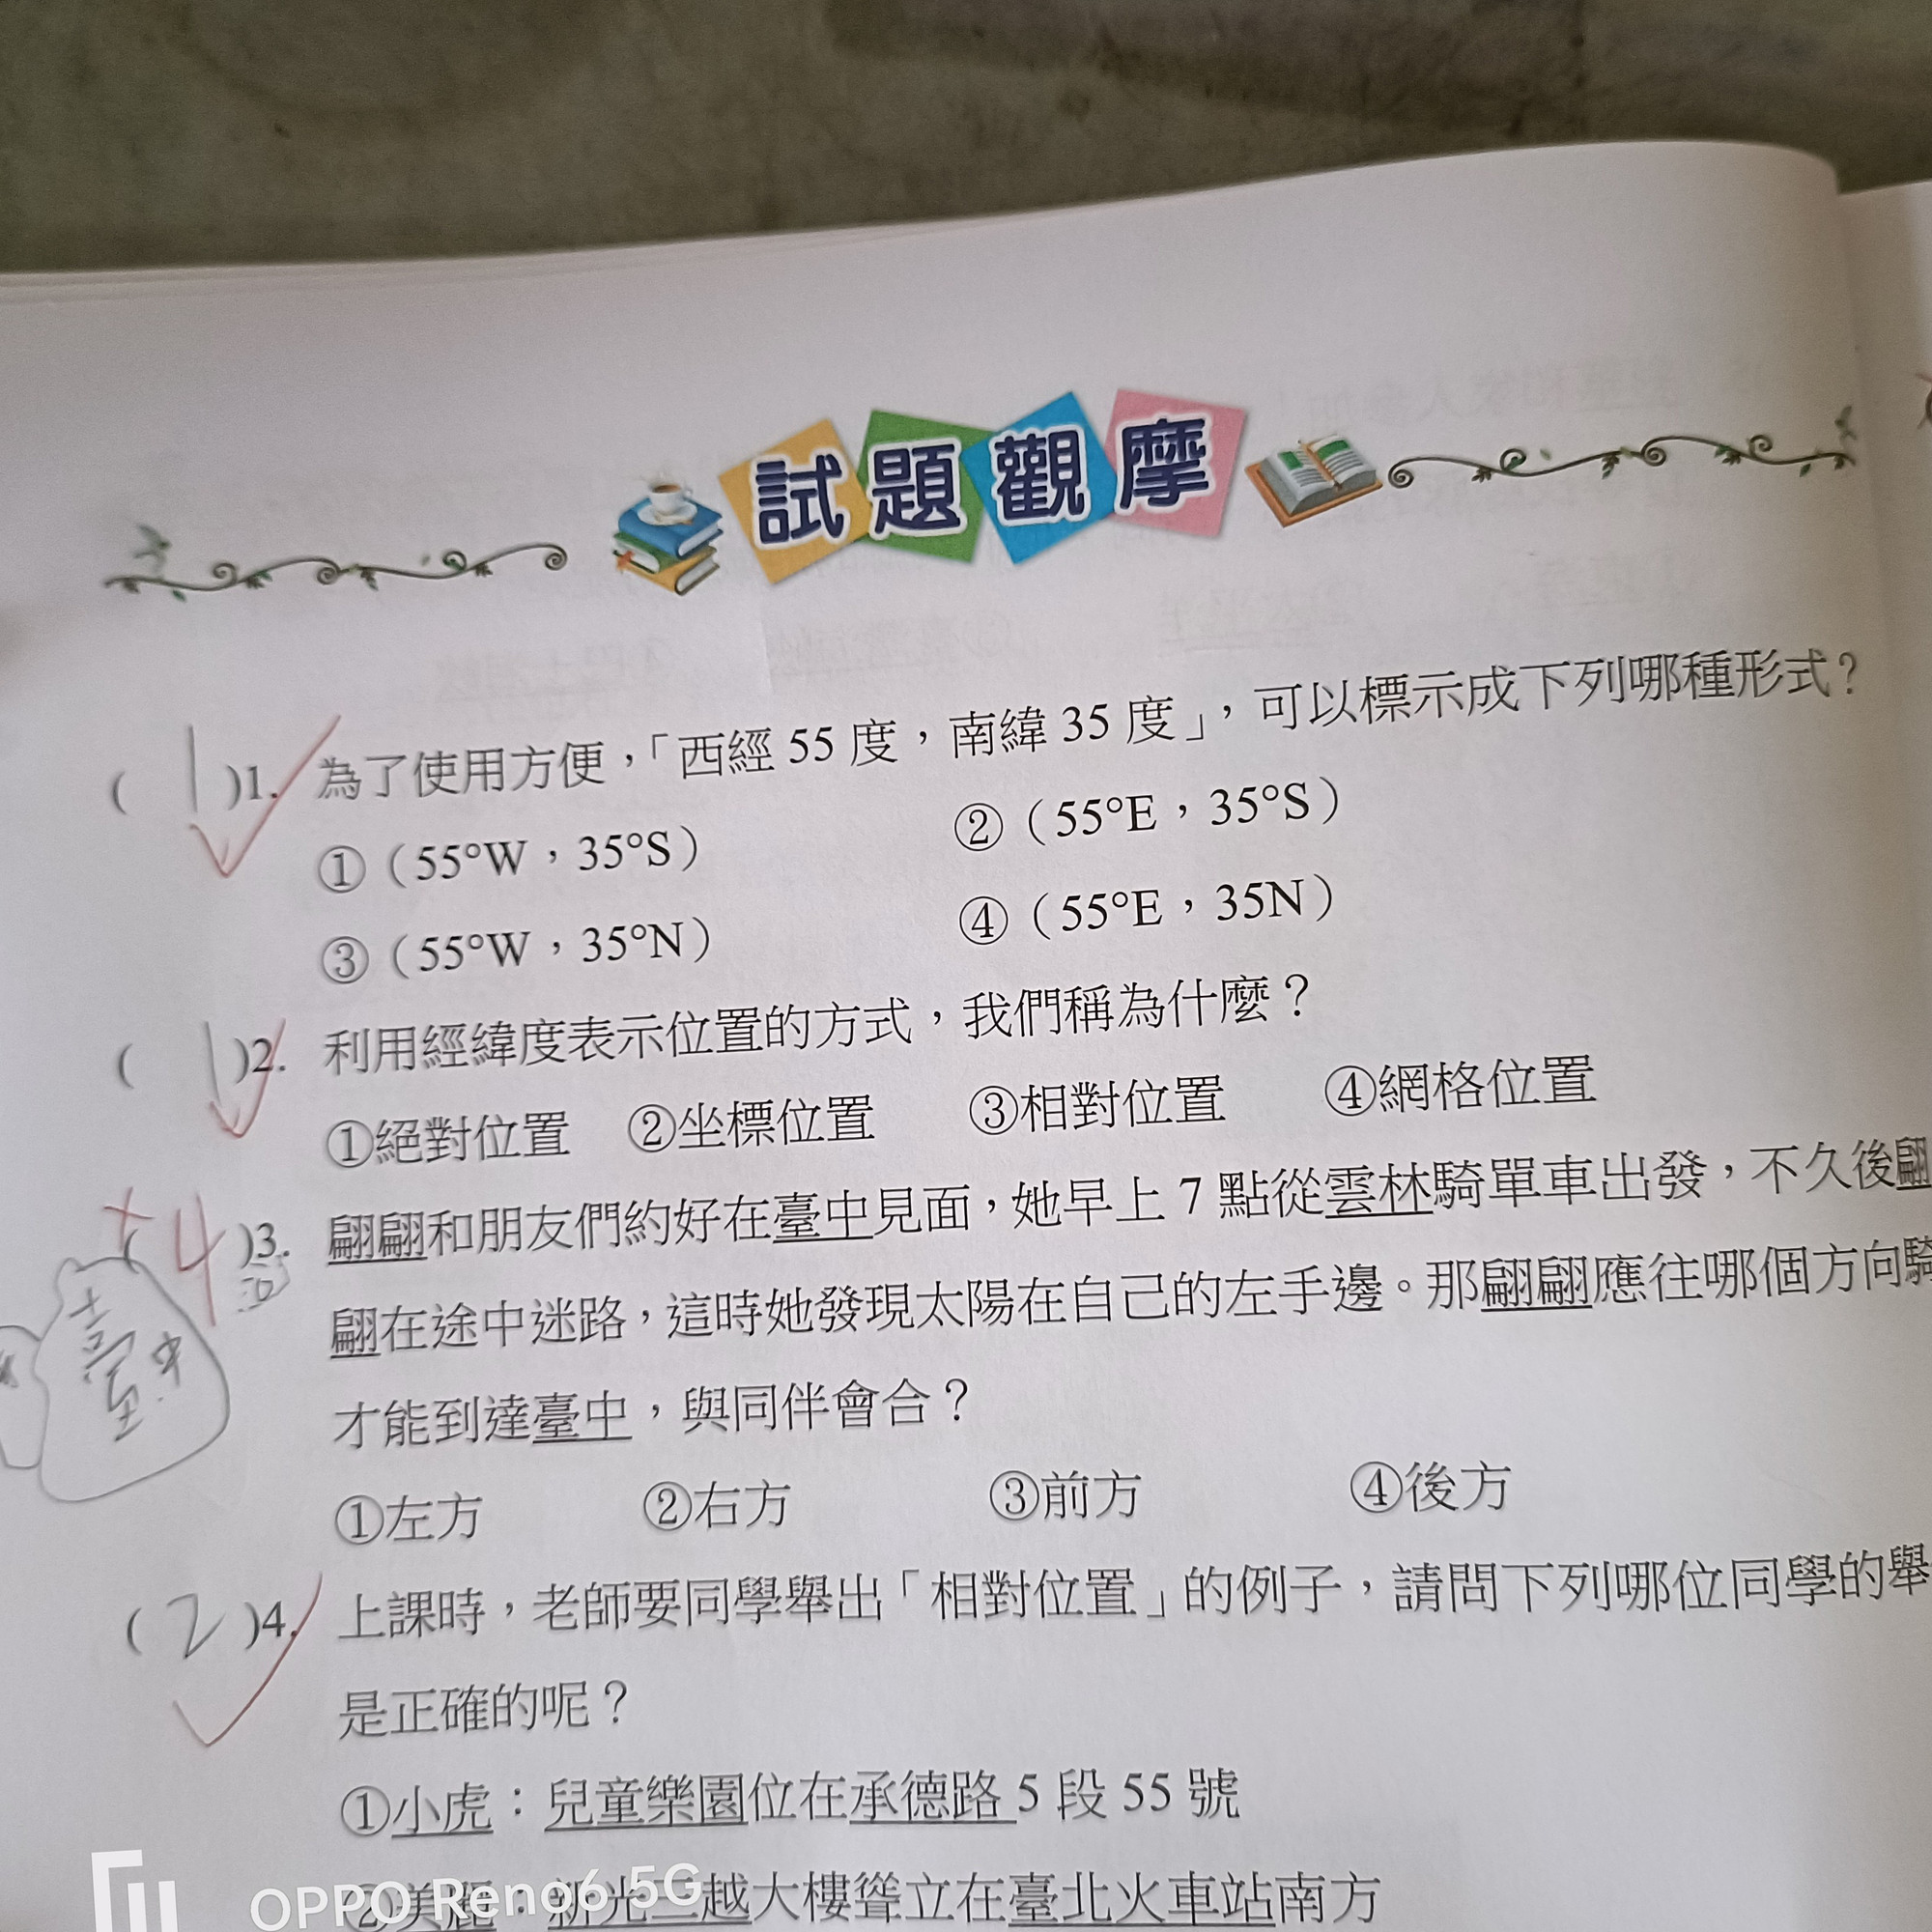 試題觀摩
( 1 )1. 為了使用方便，「西經 55 度，南緯 35 度」，可以標示成下列哪種形式？
①（55°W，35°S） ②（55°E，35°S）
③（55°W，35°N） ④（55°E，35N）
( 1 )2. 利用經緯度表示位置的方式，我們稱為什麼？
①絕對位置 ②坐標位置 ③相對位置 ④網格位置
( 4 )3. 翩翩和朋友們約好在臺中見面，她早上 7 點從雲林騎單車出發，不久後翩
翩在途中迷路，這時她發現太陽在自己的左手邊。那翩翩應往哪個方向騎
臺中
才能到達臺中，與同伴會合？
①左方 ②右方 ③前方 ④後方
( 2 )4. 上課時，老師要同學舉出「相對位置」的例子，請問下列哪位同學的舉
是正確的呢？
①小虎：兒童樂園位在承德路 5 段 55 號
②美麗：新光三越大樓聳立在臺北火車站南方
OPPO Reno6 5G